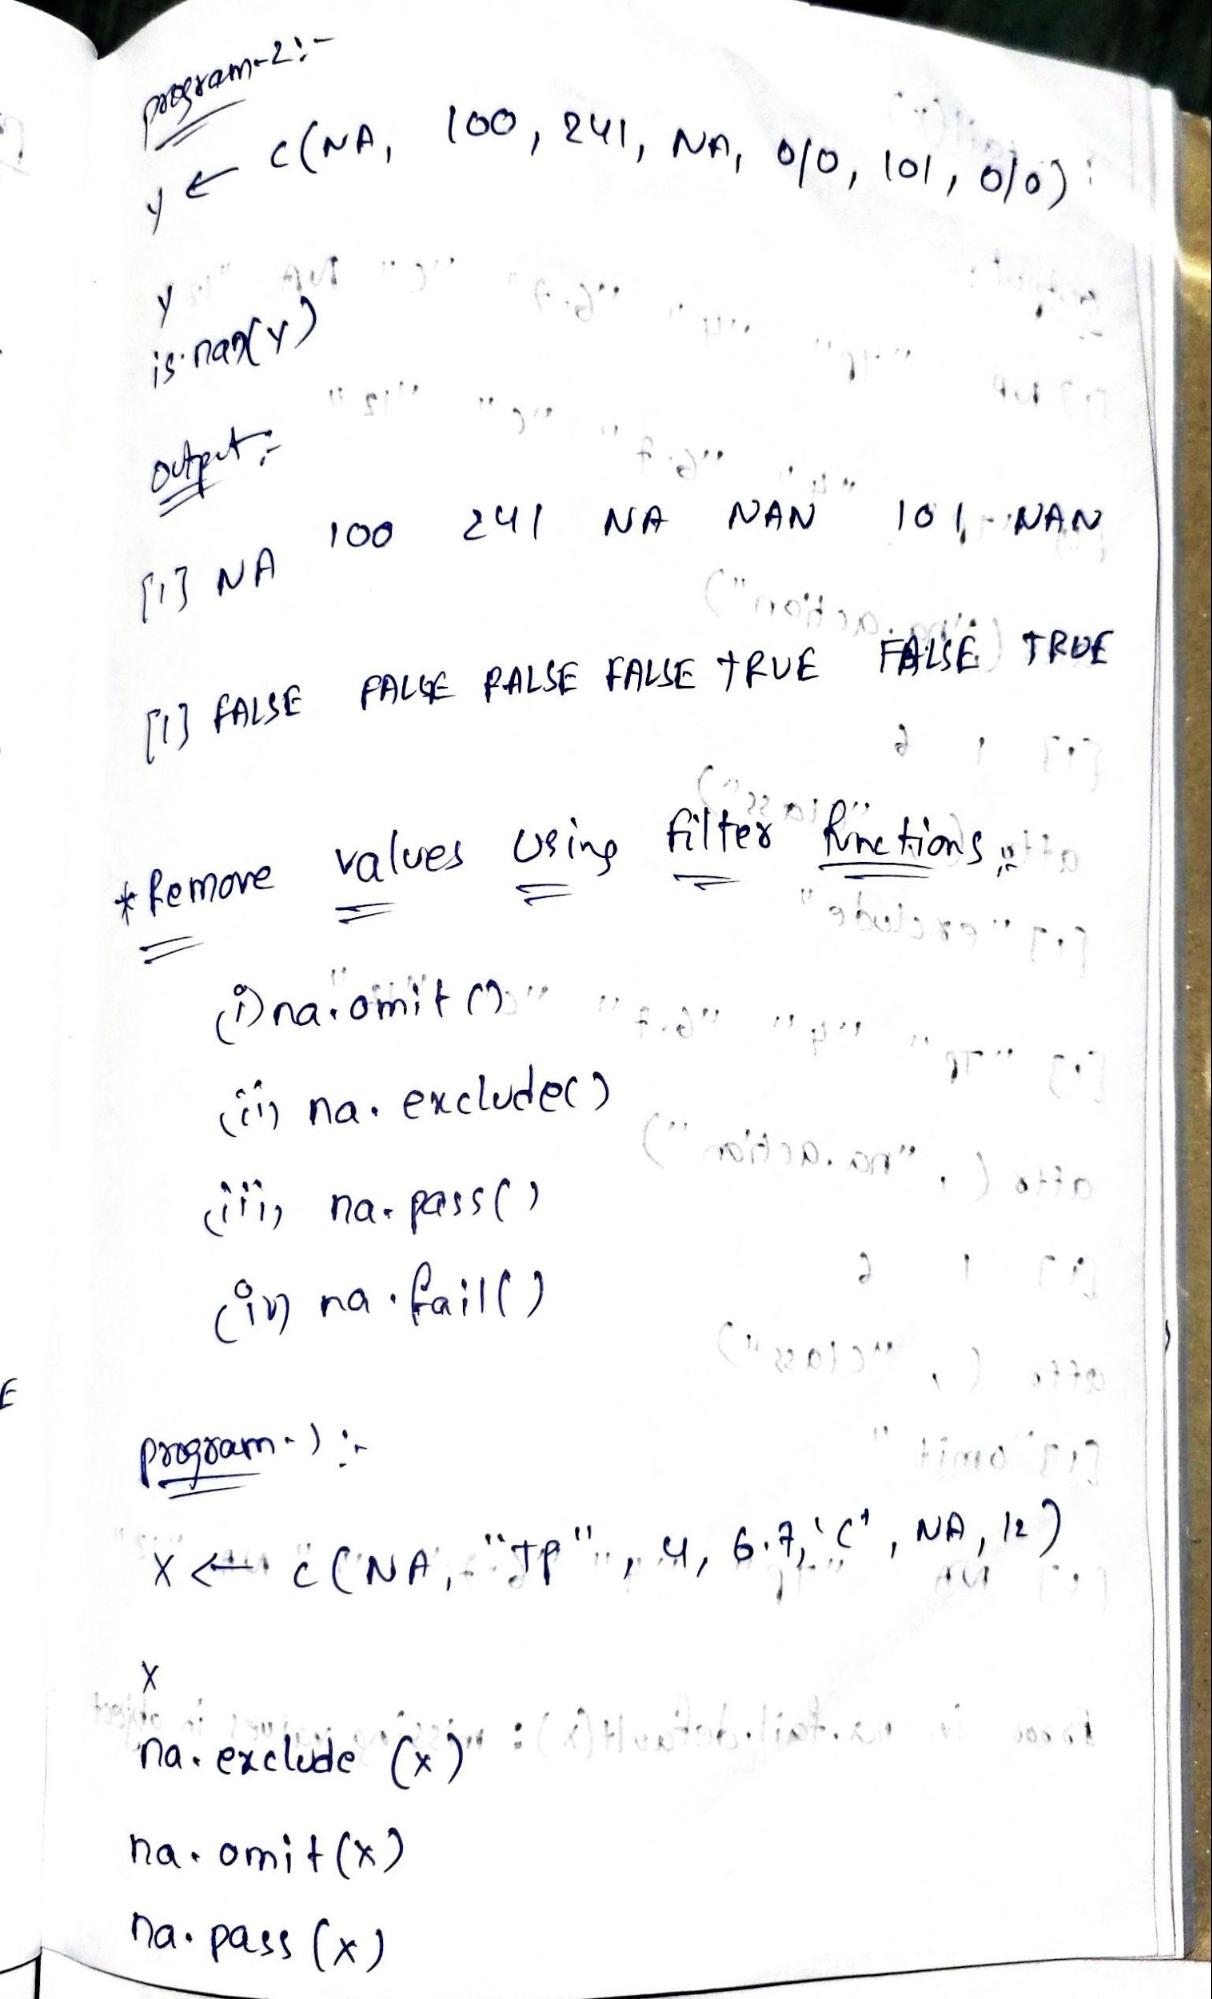 program-2:-
y ← c(NA, 100, 241, NA, 0/0, 101, 0/0)
y
is.nan(y)
output:-
[1] NA 100 241 NA NAN 101 NAN
[1] FALSE FALSE FALSE FALSE TRUE FALSE TRUE
* Remove values using filter functions:-
(i) na.omit()
(ii) na.exclude()
(iii) na.pass()
(iv) na.fail()
program-1:-
x ← c(NA, "TP", 4, 6.7, 'c', NA, 12)
x
na.exclude (x)
na.omit(x)
na.pass (x)